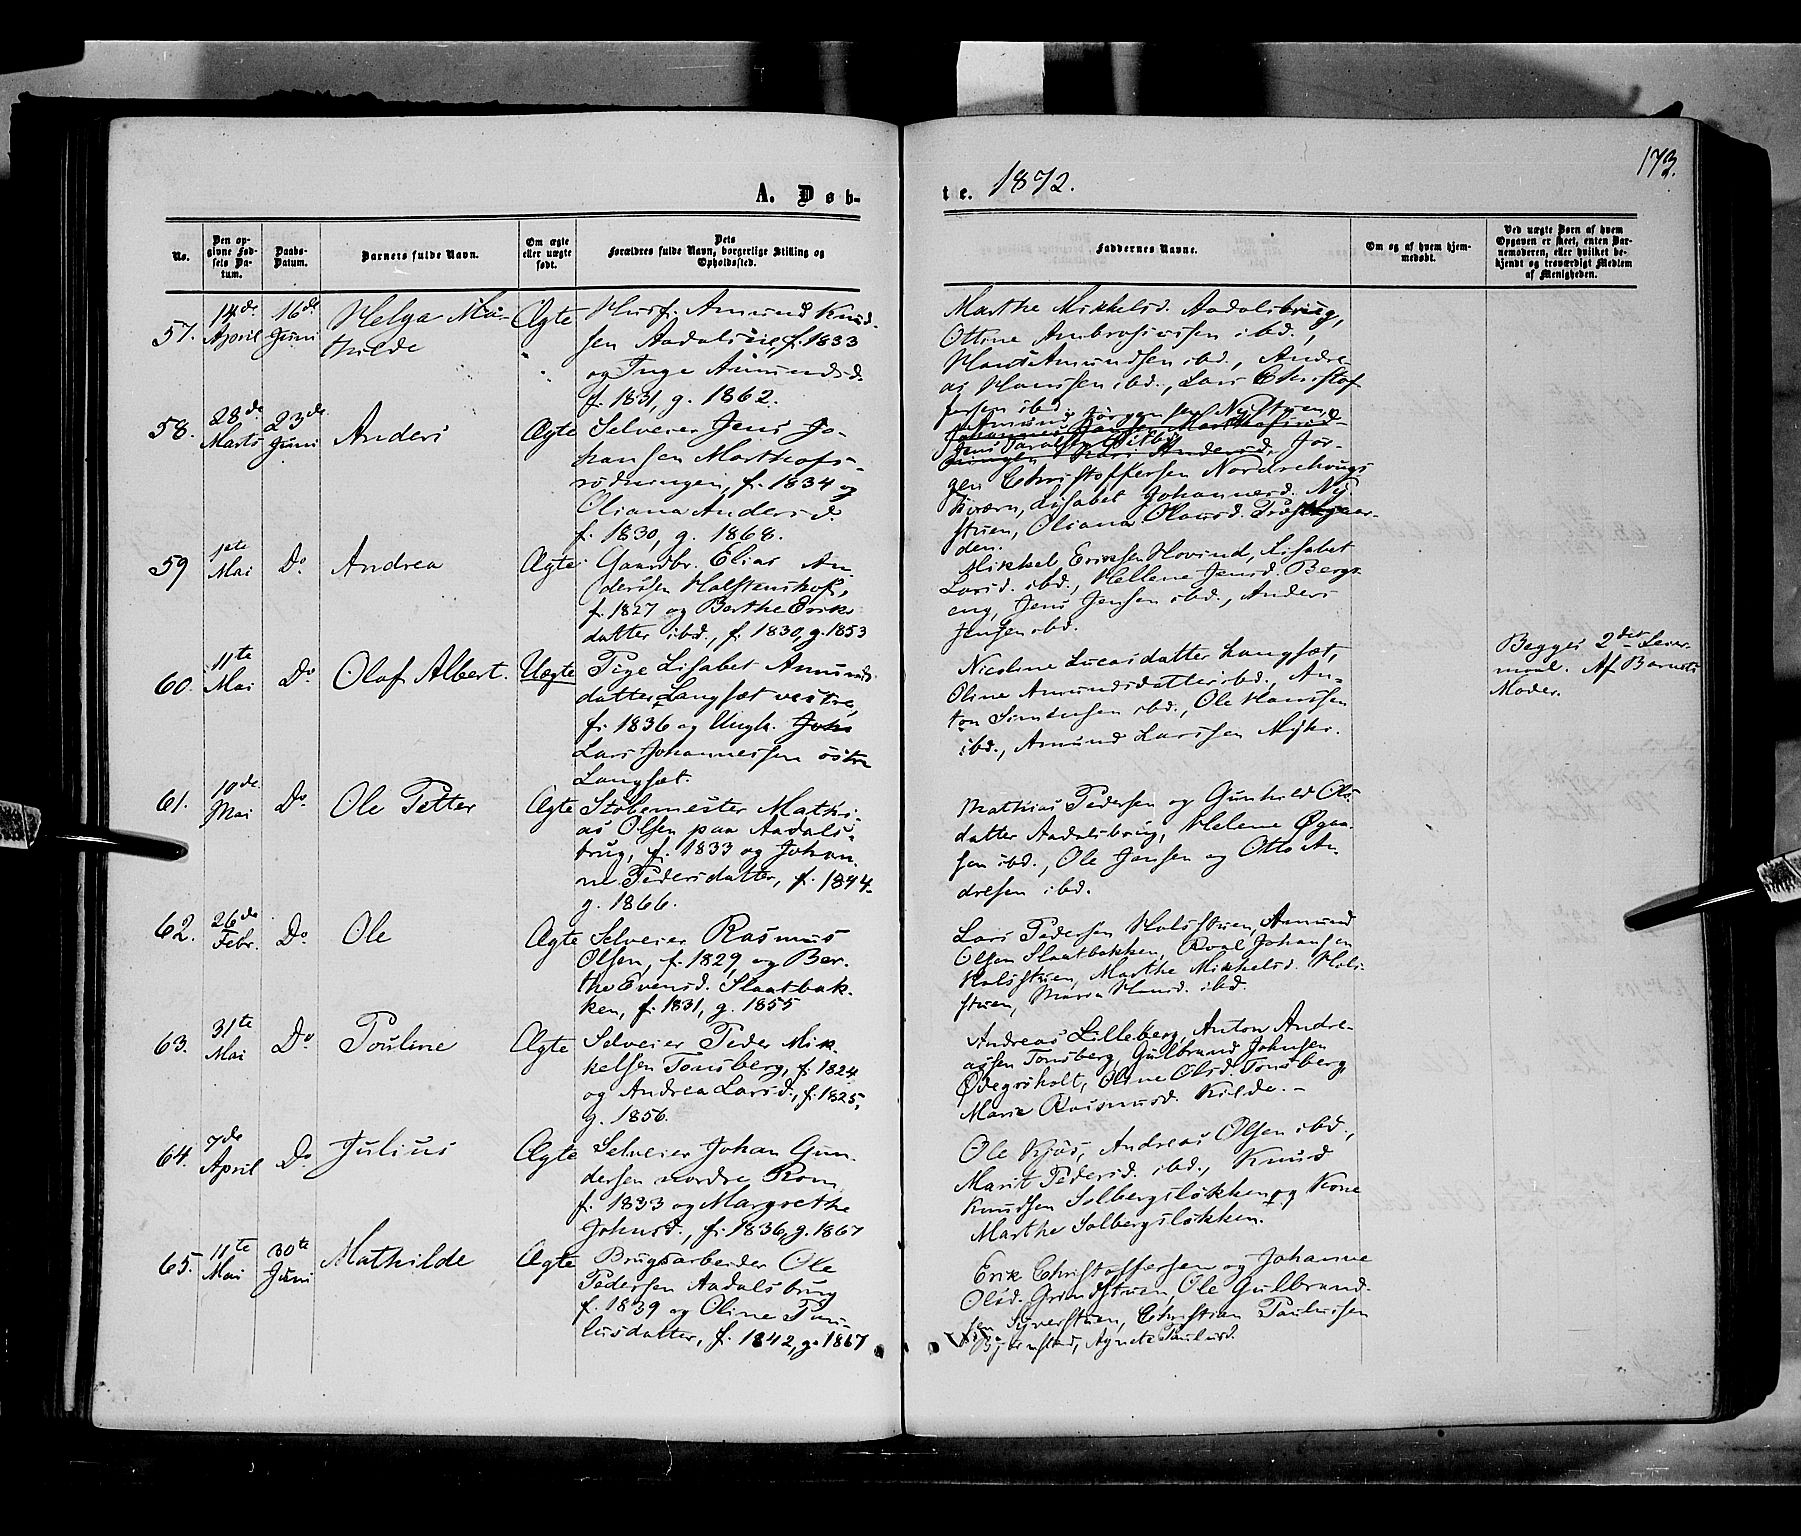 173.
A. Døb-
te. 1872.
No.
Den op-
givne Fød-
sels Da-
tum.
Daabs-
Datum.
Barnets fulde Navn.
Om ægte
eller uægte
født.
Dets
Forældres fulde Navn, borgerlige Stilling og
Opholdssted.
Faddernes Navne.
Om og af hvem hjem-
medøbt.
Ved uægte Børn af hvem
Opgaven er skeet, enten Bar-
nemoderen, eller hvilket be-
kjendt og troværdigt Medlem
af Menigheden.
57. 14de April 16de Juni Helga Ma-
thilde
Ægte
Husf. Amund Knud-
sen Aadalseie, f. 1833
og Inge Amundsd.
f. 1831, g. 1862.
Marthe Mikkelsd. Aadalsbrug,
Ottine Ambrosiussen ibd.,
Hans Amundsen ibd., Andre-
as Hanssen ibd., Lars Christof-
fersen ibd.
58. 28de Marts 23de Juni Anders
Ægte
Selveier Jens Jo-
hansen Marthofs-
rødningen, f. 1834 og
Oliana Andersd.
f. 1830, g. 1868.
Jør-
gen Christoffersen Nordrehougs
Kværn, Lisabet Johannesd. Ny-
stuen, Oliana Olausd.
den.
59 1ste Mai Do Andrea
Ægte
Gaardbr. Elias An-
dersen Halstenshof,
f. 1827 og Berthe Eriks-
datter ibd., f. 1830, g. 1853
Mikkel Eriksen Hovind, Lisabet
Larsd. ibd., Hellene Jensd. Berg-
eng, Jens Jensen ibd., Anders
Jensen ibd.
60. 11te Mai Do Olaf Albert.
Uægte
Pige Lisabet Amunds-
datter Langsæt vestre,
f. 1836 og Ungk. Joha
Lars Johannessen östre
Langsæt.
Nicoline Lucasdatter Langsæt,
Oline Amundsdatter ibd., An-
ton Simensen ibd., Ole Hanssen
ibd., Amund Larssen
Begges 2det Leier-
maal. Af Barnets
Moder.
61. 10de Mai Do Ole Petter
Ægte
Støbemester Mathi-
as Olsen paa Aadals-
brug, f. 1833 og Johan-
ne Pedersdatter, f. 1844-
g. 1866.
Mathias Pedersen og Gunhild Ols-
datter Aadalsbrug, Helene
sen ibd., Ole Jensen og Otto An-
dresen ibd.
62. 26de Febr. Do Ole
Ægte
Selveier Rasmus
Olsen, f. 1829, og Ber-
the Evensd. Slaatbak-
ken, f. 1831, g. 1855
Lars Pedersen Holsstuen, Amund
Olsen Slaatbakken, Roal Johansen
Holsstuen, Marthe Mikkelsd. Hols-
stuen, Maren Hansd. ibd.
63. 31te Mai Do Pouline
Ægte
Selveier Peder Mik-
kelsen Tonsberg, f. 1824
og Andrea Larsd., f. 1825,
g. 1856.
Andreas Lilleberg, Anton Andre-
assen Tonsberg, Gulbrand Johnsen
Ødegsholt, Oline Olsd. Tonsberg
Marie Rasmusd. Kilde.-
64. 7de April Do Julius
Ægte
Selveier Johan Gun-
dersen nordre Rom
f. 1833 og Margrethe
Johnsd., f. 1836, g. 1867
Ole Kjøs, Andreas Olsen ibd.,
Marit Pedersd. ibd., Knud
Knudsen Solbergsløkken og Kone
Marthe Solbergsløkken.
65. 11te Mai 30te Juni Mathilde
Ægte
Brugsarbeider Ole
Pedersen Aadalsbrug
f. 1839 og Oline Pau-
lusdatter, f. 1842, g. 1867
Erik Christoffersen og Johanne
Olsd. Grindstuen, Ole Gulbrand-
sen Syverstuen, Christian Paulussen
Bjørnstad, Agnete Paulusd.